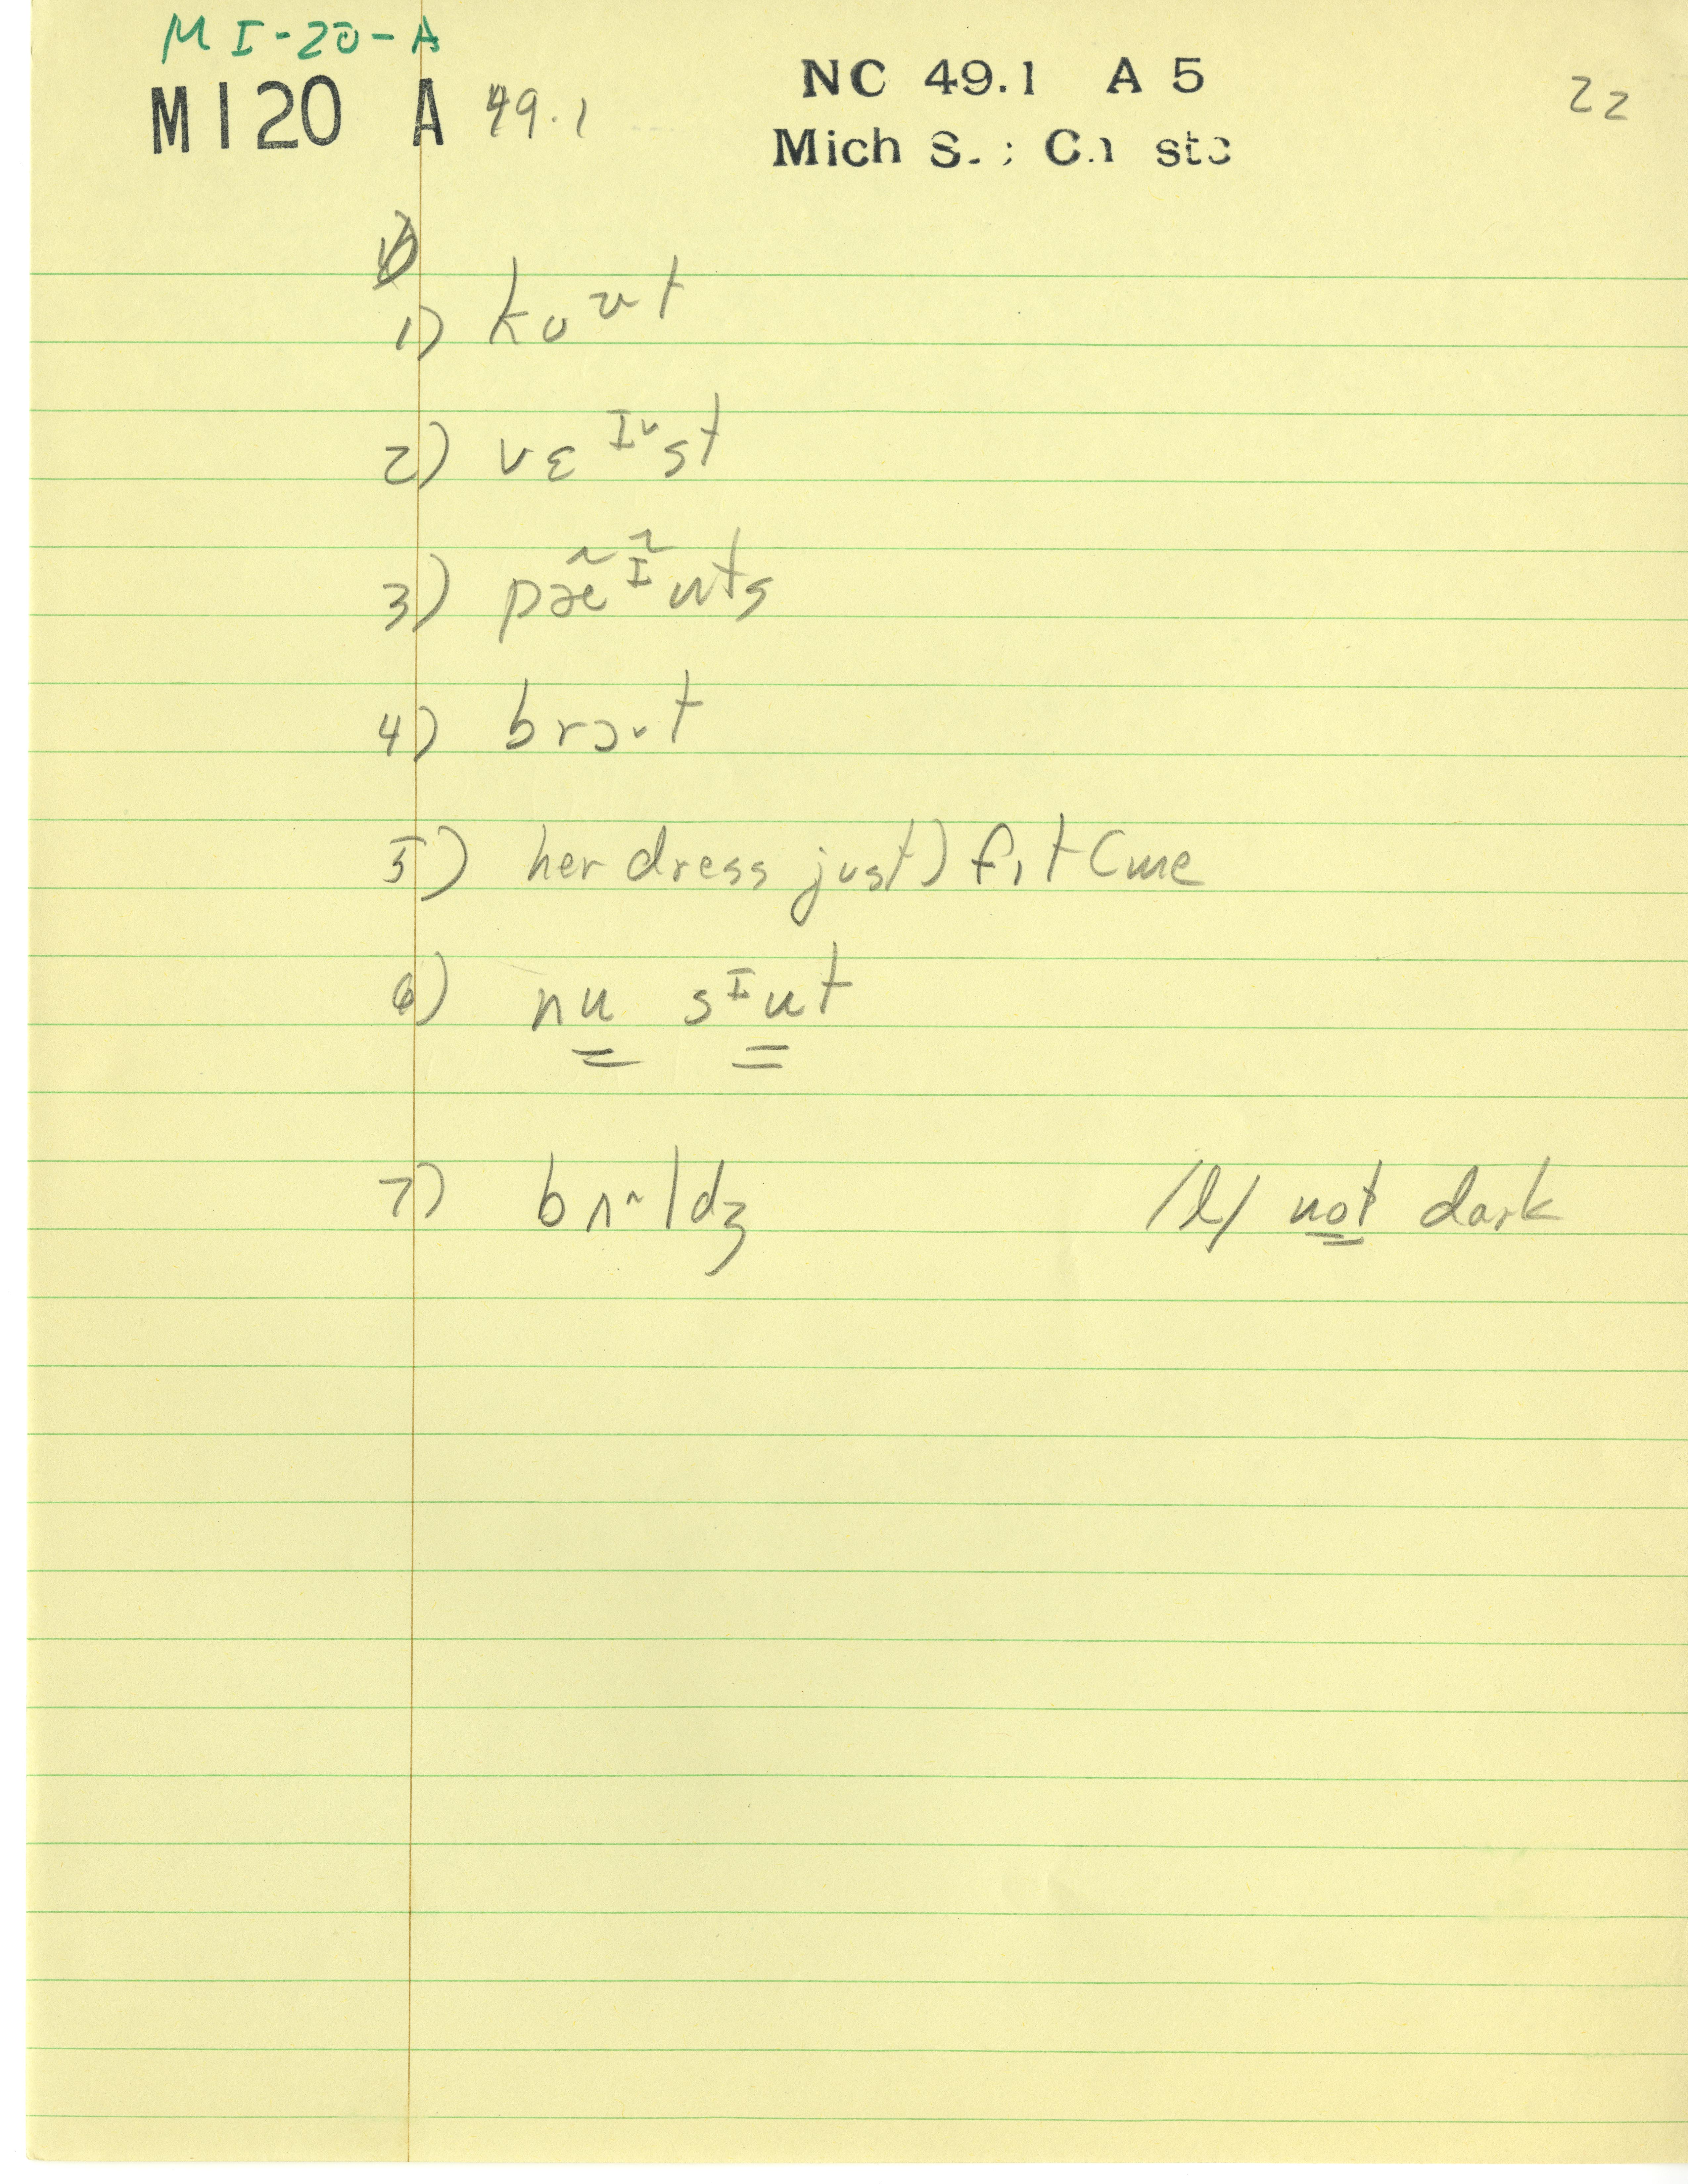 MI-20-A
MI20 A 49.1
NC 49.1 A 5
22
1) koᵘt
2) vɛᴵᵛst
3) pæ̃ᴵ̃nts
4) brɔ·t
5) her dress just) fit (me
6) nu sᴵut
7) bʌldʒ /l/ not dark